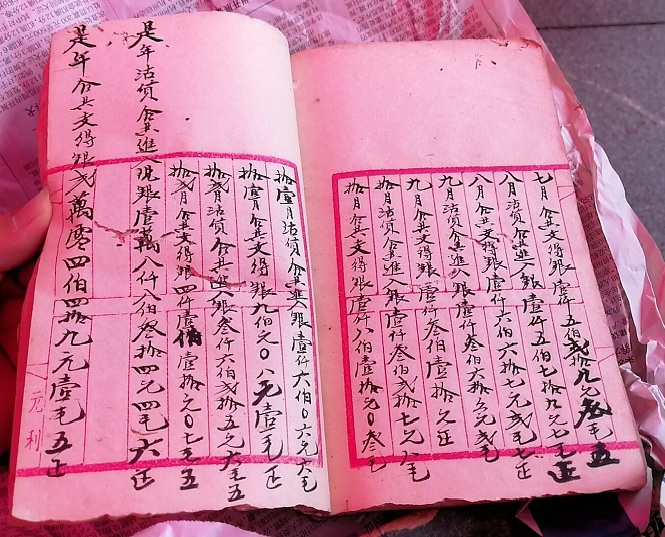 七月合共支得銀壹仟五伯貳拾九元叁毛五
八月沽貨合共進入銀壹仟五伯七拾九元七毛正
八月合共支得銀壹仟六伯六拾七元貳毛七正
九月沽貨合共進入銀壹仟叁伯六拾元貳毛
九月合共支得銀壹仟叁伯壹拾元正
拾月沽貨合共進入銀壹仟叁伯貳拾七元八毛
拾月合共支得銀壹仟八伯壹拾元0叁毛
拾壹月沽貨合共進入銀壹仟六伯0六元六毛
拾壹月合共支得銀九伯元0八元壹毛正
拾貳月沽貨合共進入銀叁仟六伯貳拾五元六毛五
拾貳月合共支得銀四仟壹伯壹拾元0七毛五
是年沽貨合共進入現銀壹萬八仟八伯叁拾四元四毛六正
是年合共支得銀貳萬零四伯四拾九元壹毛五正
元利